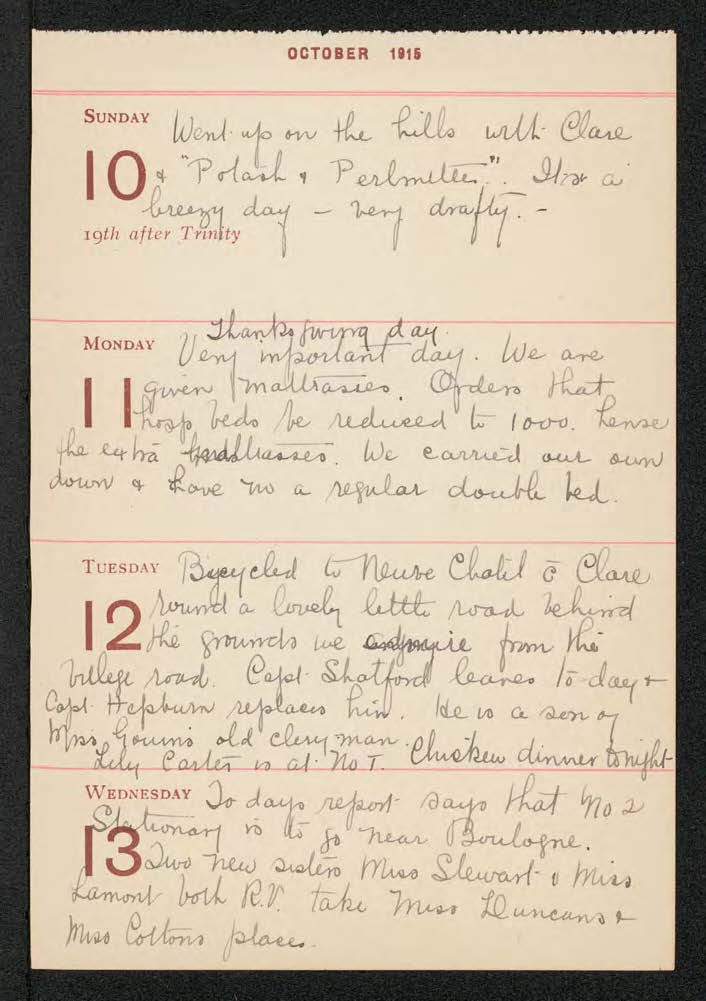 OCTOBER 1915
SUNDAY
Went up on the hills with Clare
10 & "Potash & Perlmutter". It is a
breezy day – very drafty. –
19th after Trinity
Thanksgiving day.
MONDAY
Very important day. We are
11 given mattrasses. Orders that
hosp beds be reduced to 1000. hense
the extra mattrasses. We carried our own
down & have no a regular double bed.
TUESDAY
Bycycled to Neuve Chatel c̄ Clare
12 round a lovely little road behind
the grounds we admire from the
village road. Capt. Shatford leaves to-day &
Capt. Hepburn replaces him. He is a son of
Miss old clergman.
Lily Carter is at No 1. Chicken dinner tonight
WEDNESDAY
To days report says that No 2
Stationary is to go near Boulogne.
13 Two new sisters Miss Stewart & Miss
Lamont both R.V. take Miss Duncans &
Miss Cottons places.